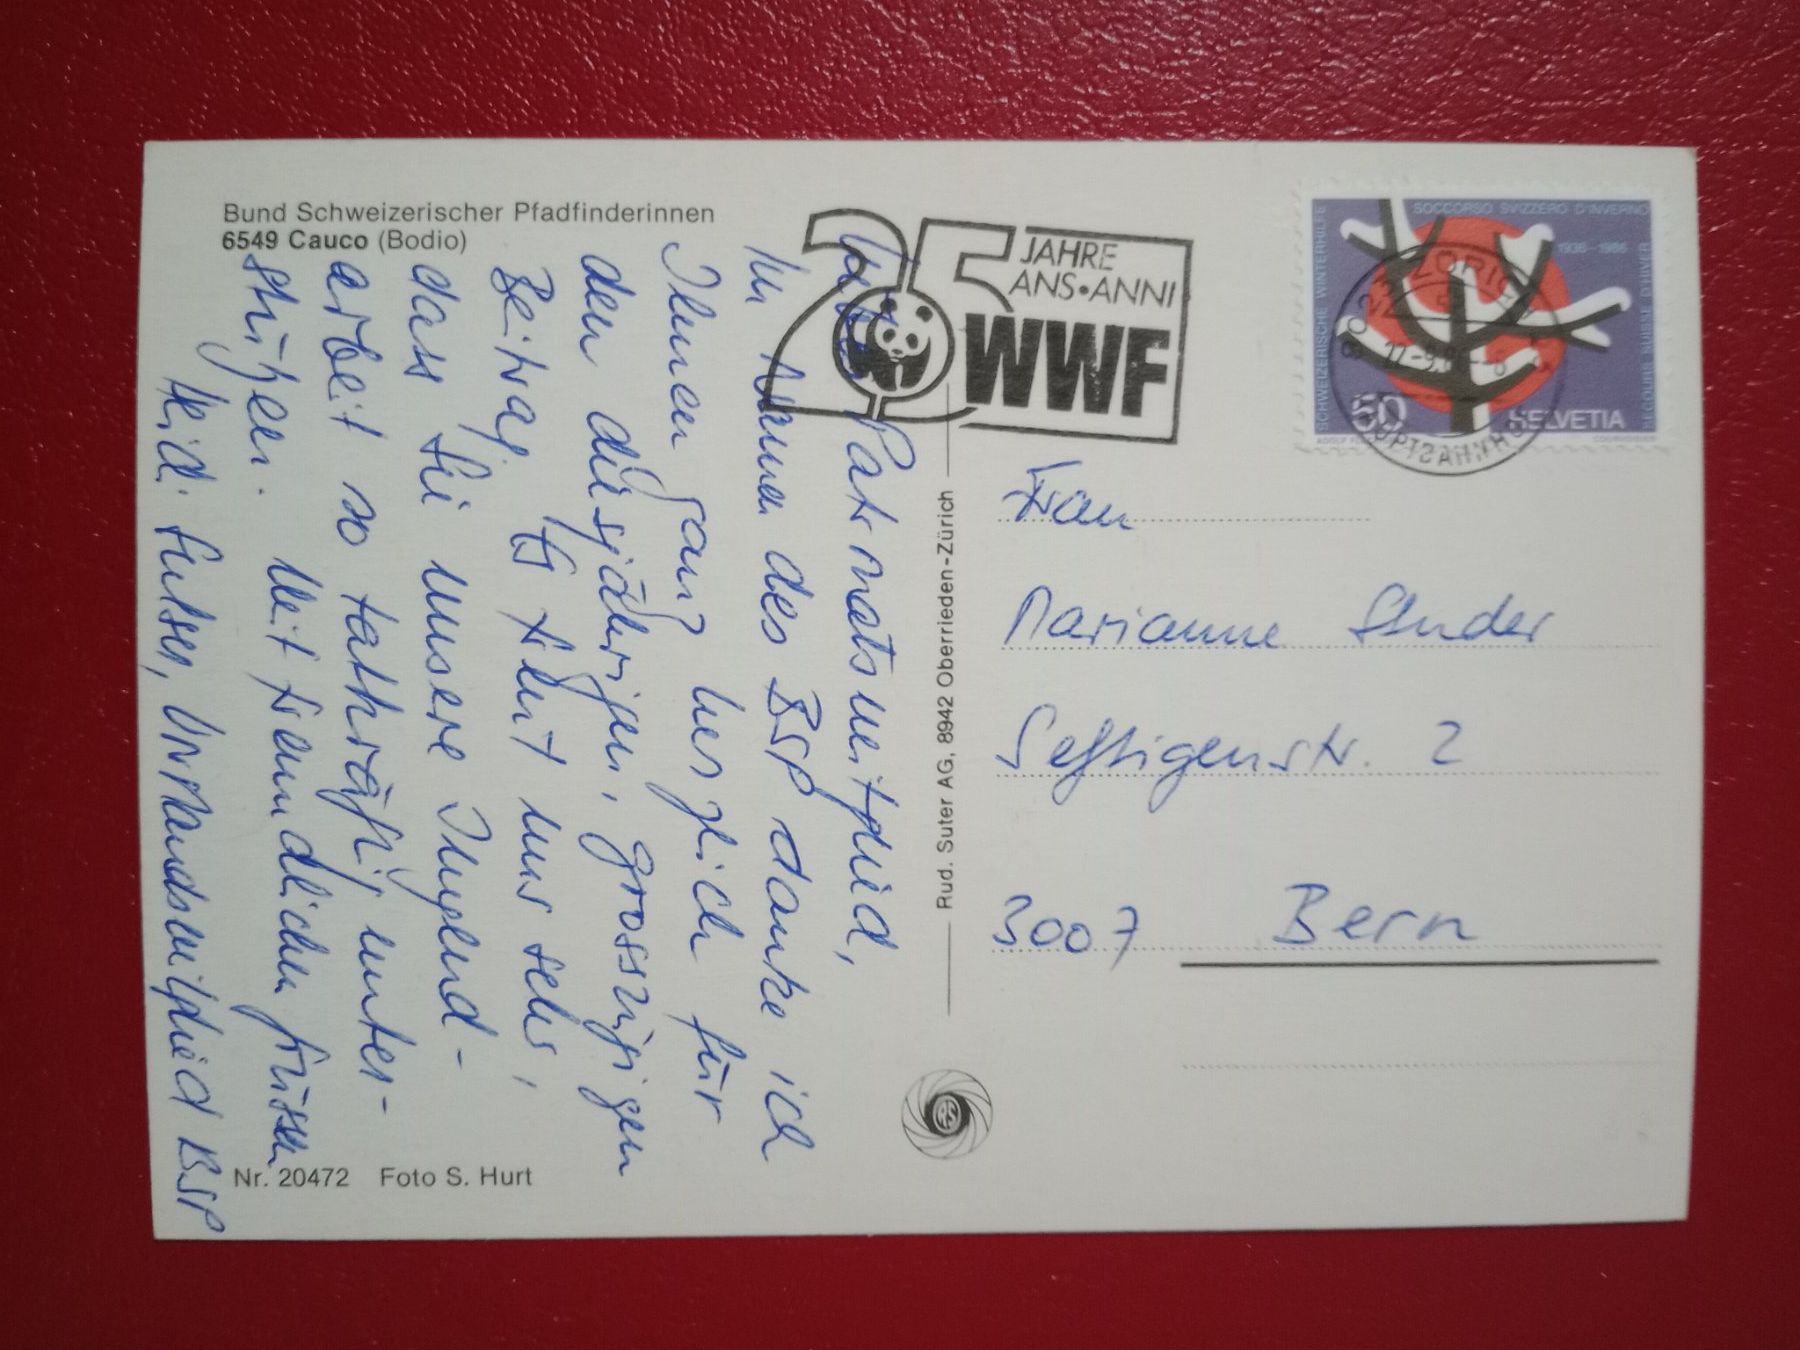 Bund Schweizerischer Pfadfinderinnen
6549 Cauco (Bodio)
25 JAHRE
ANS•ANNI
WWF
SCHWEIZERISCHE WINTERHILFE
SOCCORSO SVIZZERO D'INVERNO
1936-1986
SECOURS SUISSE D'HIVER
50
HELVETIA
COURVOISIER
Patronatsmitglied,
Im Namen des BSP danke ich
Ihnen ganz herzlich für
den diesjährigen, grosszügigen
Beitrag. Es freut uns sehr,
dass Sie unsere Jugend-
arbeit so tatkräftig unter-
stützen. Mit freundlichen Grüssen
Heidi Vorstandsmitglied BSP
Rud. Suter AG, 8942 Oberrieden-Zürich
Frau
Marianne Studer
Seftigenstr. 2
3007 Bern
Nr. 20472 Foto S. Hurt